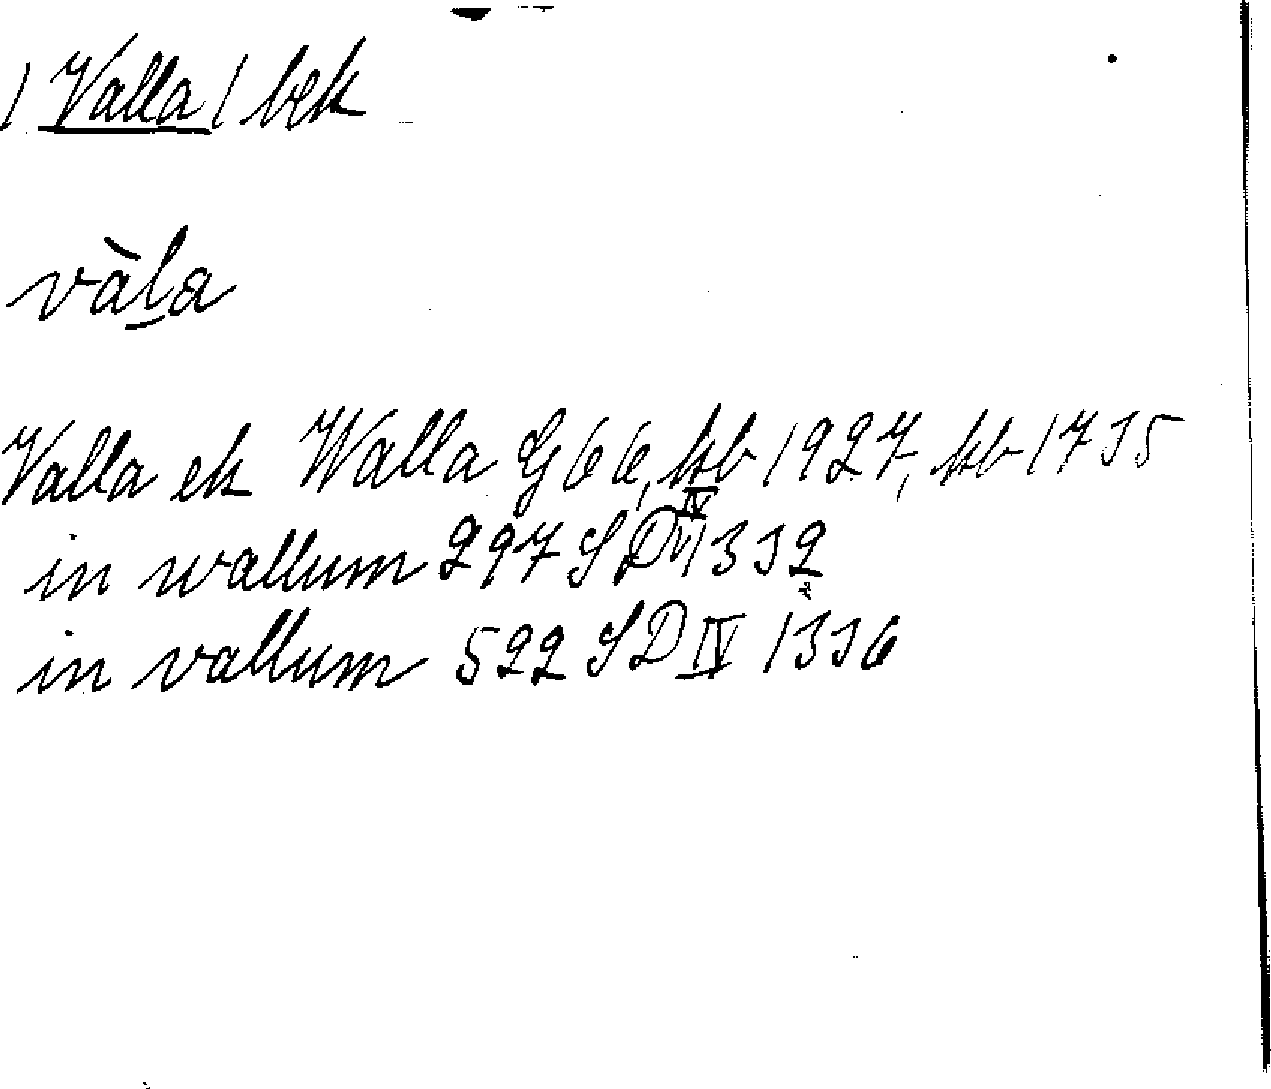 / Valla / bek
vàḻa
Valla ek Walla G 66, kb 1927, kb 1735
in wallum 297 SD IV 1332
in vallum 522 SD IV 1336